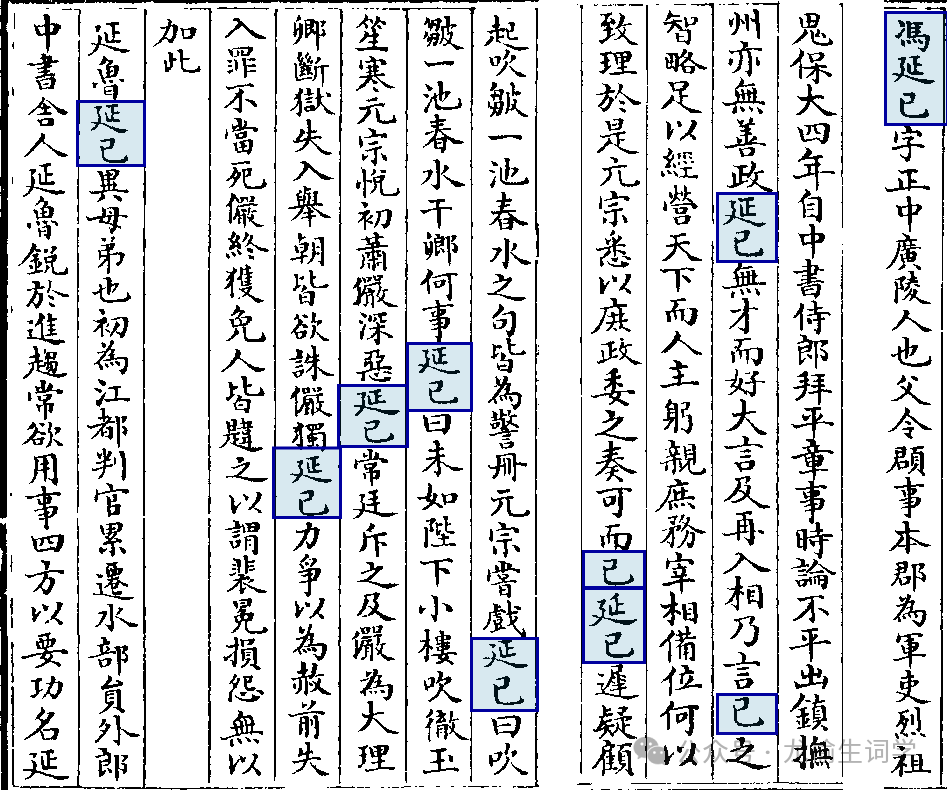 馮延已字正中廣陵人也父令頵事本郡為軍吏烈祖
鬼保大四年自中書侍郎拜平章事時論不平出鎮撫
州亦無善政延已無才而好大言及再入相乃言已之
智略足以經營天下而人主躬親庶務宰相備位何以
致理於是元宗悉以庶政委之奏可而已延已遲疑顧
起吹皺一池春水之句皆為警冊元宗嘗戲延已曰吹
皺一池春水干卿何事延已曰未如陛下小樓吹徹玉
笙寒元宗悅初蕭儼深惡延已常廷斥之及儼為大理
卿斷獄失入舉朝皆欲誅儼獨延已力爭以為赦前失
入罪不當死儼終獲免人皆韙之以謂裴冕損怨無以
加此
延魯延已異母弟也初為江都判官累遷水部員外郎
中書舍人延魯銳於進趨常欲用事四方以要功名延
公众号 · 龙榆生词学